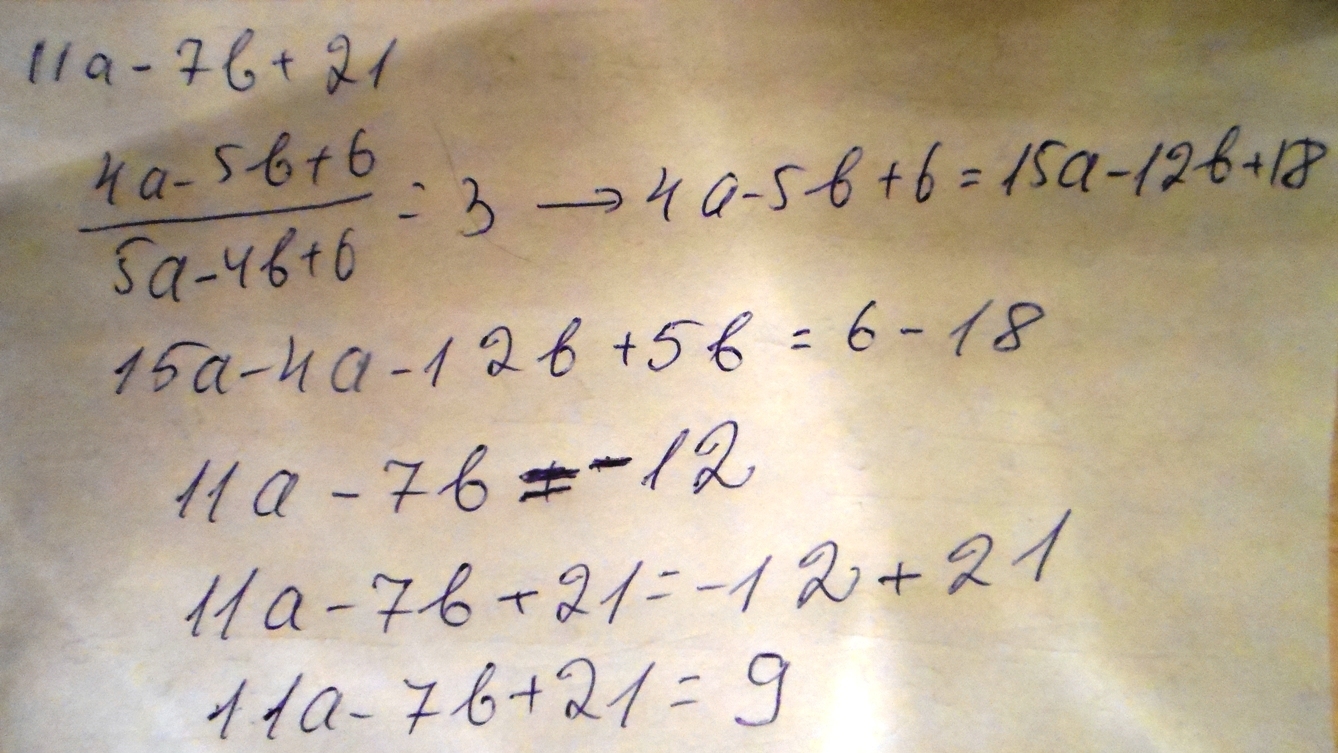 11a - 7b + 21
4a - 5b + 6 / 5a - 4b + 6 = 3 → 4a - 5b + 6 = 15a - 12b + 18
15a - 4a - 12b + 5b = 6 - 18
11a - 7b = -12
11a - 7b + 21 = -12 + 21
11a - 7b + 21 = 9